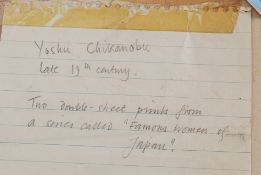 Yoshu Chikanobu
late 19th century.
Two double-sheet prints from
a series called "Famous Women of
Japan".